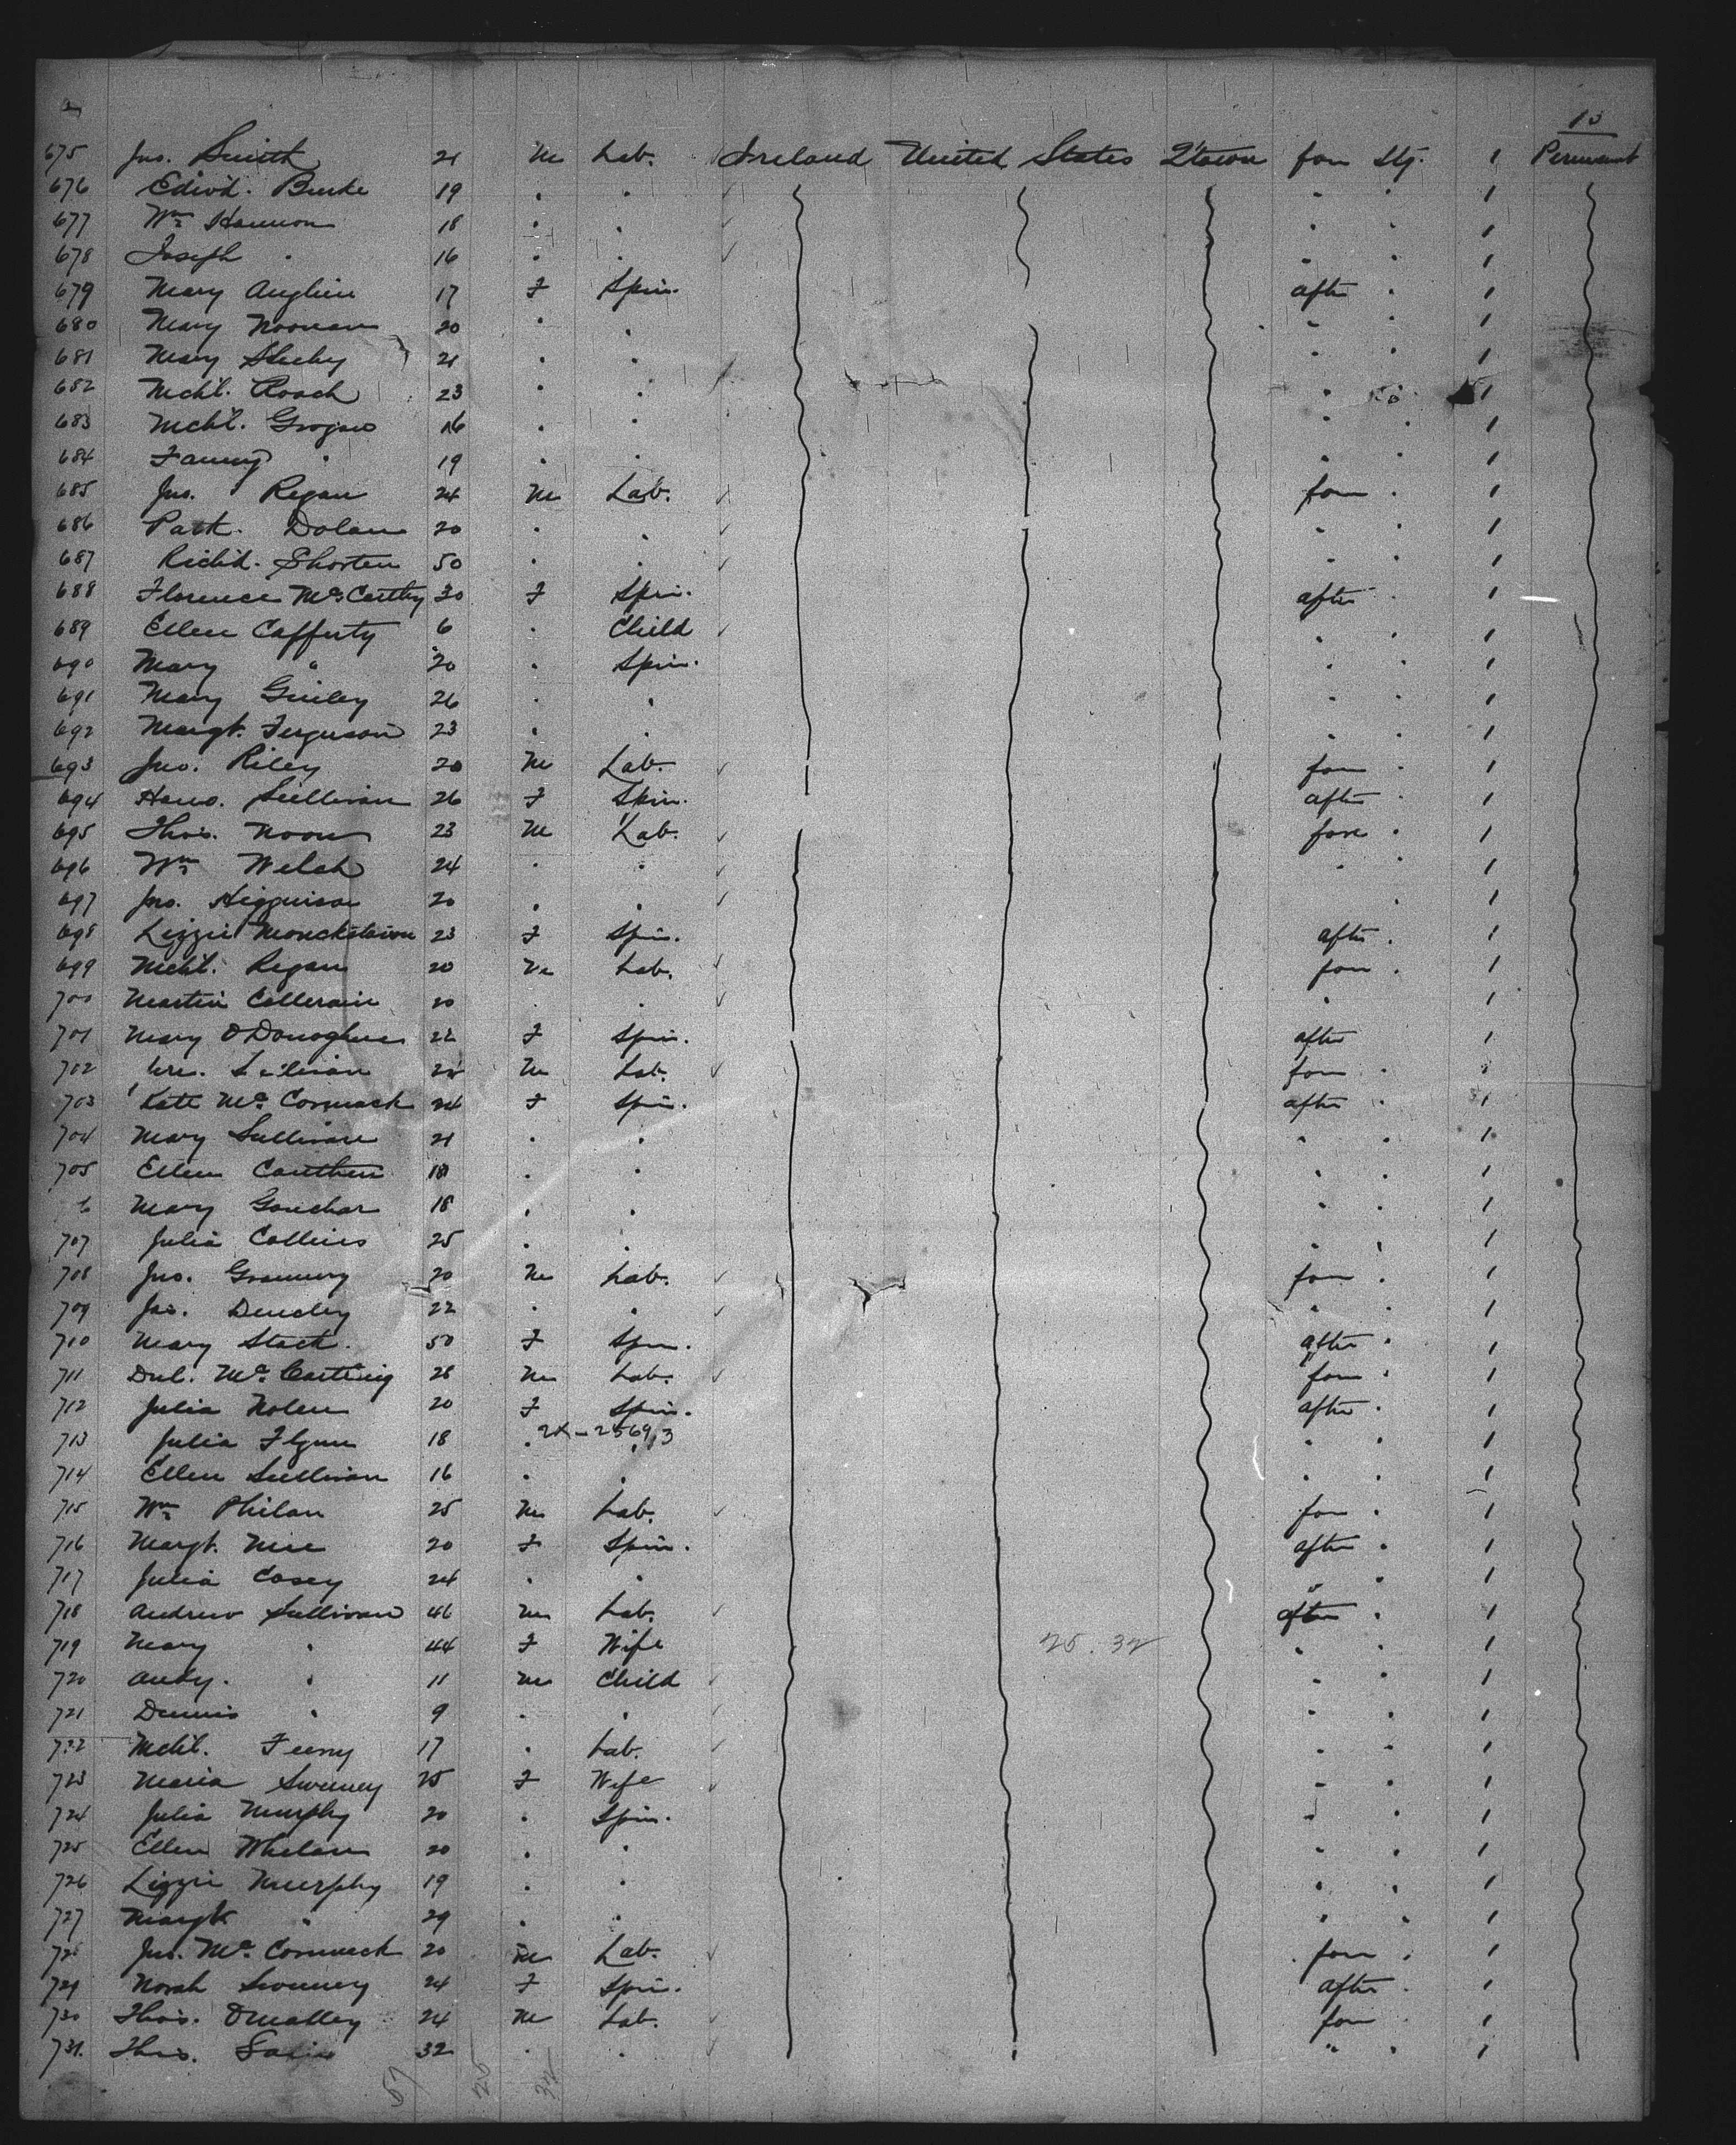 13
675 Jno. Smith 21 M Lab. Ireland United States Q'town fore Stg. 1 Permanent
676 Edwd. Burke 19 . . . . 1
677 Wm Hannon 18 . . . . 1
678 Joseph " 16 . . . . 1
679 Mary Anglim 17 F Spin. after . 1
680 Mary Noonan 20 . . . . 1
681 Mary Sheehy 21 . . . . 1
682 Michl. Roach 23 . . . . 1
683 Michl. Grogan 16 . . . . 1
684 Fanny " 19 . . . . 1
685 Jno. Regan 24 M Lab. fore . 1
686 Patk. Dolan 20 . . . . 1
687 Richd. Shorten 50 . . . . 1
688 Florence McCarthy 30 F Spin. after . 1
689 Ellen Cafferty 6 . Child . . 1
690 Mary " 20 . Spin. . . 1
691 Mary Ginley 26 . . . . 1
692 Margt. Ferguson 23 . . . . 1
693 Jno. Riley 20 M Lab. fore . 1
694 Hano. Sullivan 26 F Spin. after . 1
695 Thos. Noon 23 M Lab. fore . 1
696 Wm Welsh 24 . . . . 1
697 Jno. Higginson 20 . . . 1
698 Lizzie 23 F Spin. after . 1
699 Michl. Regan 20 M Lab. fore . 1
700 Martin Collerain 20 . . . 1
701 Mary O'Donoghue 22 F Spin. after 1
702 M Lab. fore . 1
703 Kate McCormack 24 F Spin. after . 1
704 Mary Sullivan 21 . . . . 1
705 Ellen 18 . . . . 1
6 Mary 18 . . . . 1
707 Julia Collins 25 . . . . 1
708 Jno. 20 M Lab. fore . 1
709 Jas. 22 . . . . 1
710 Mary Stack. 50 F Spin. after . 1
711 Dnl. McCarthy 28 M Lab. fore . 1
712 Julia Nolen 20 F Spin. after . 1
713 Julia Flynn 18 . 2X-25693 . . 1
714 Ellen Sullivan 16 . . . . 1
715 Wm Philan 25 M Lab. fore . 1
716 Margt. 20 F Spin. after . 1
717 Julia Casey 24 . . " . 1
718 Andrew Sullivan 46 M Lab. after . 1
719 Mary " 44 F Wife 25.32 . . 1
720 Andy. " 11 M Child . . 1
721 Dennis " 9 . . . . 1
722 Michl. 17 . Lab. . . 1
723 Maria Sweeney 25 F Wife . . 1
724 Julia Murphy 20 . Spin. . . 1
725 Ellen Whelan 20 . . . . 1
726 Lizzie Murphy 19 . . . . 1
727 Margt " 29 . . . . 1
728 Jno. McCormack 20 M Lab. fore . 1
729 Norah Sweeney 24 F Spin. after . 1
730 Thos. O'Malley 24 M Lab. fore . 1
731. Thos. 32 . . " . 1
57 25 32